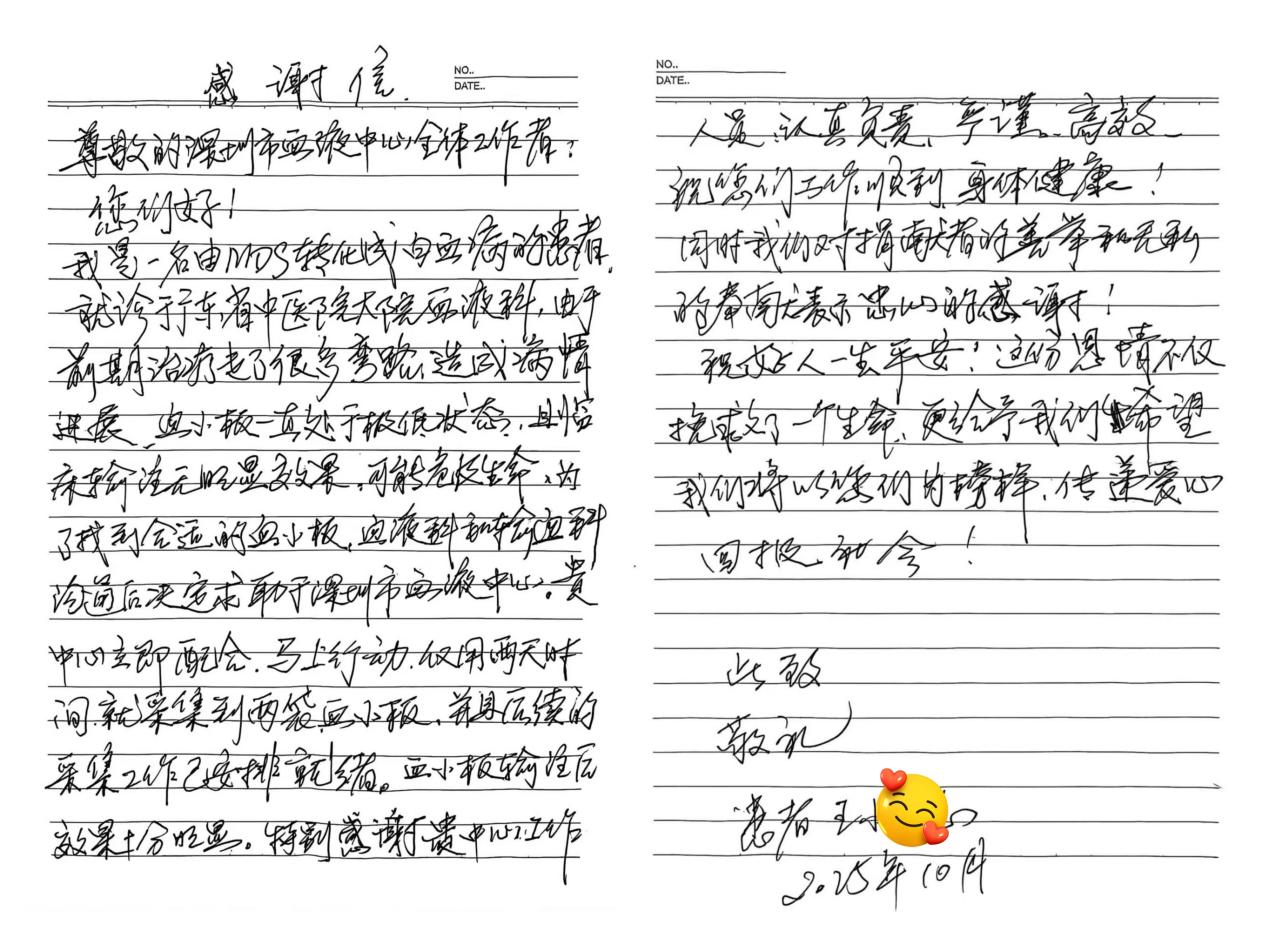 感谢信.
NO..
DATE..
尊敬的深圳市血液中心全体工作者:
您们好!
我是一名由MDS转化成白血病的患者,
就诊于广东省中医院大院血液科,由于
前期治疗走了很多弯路,造成病情
进展,血小板一直处于极低状态,且临
床输注无明显效果,可能危及生命,为
了找到合适的血小板,血液科和输血科
沟通后决定求助于深圳市血液中心。贵
中心立即配合,马上行动,仅用两天时
间,就采集到两袋血小板,并且后续的
采集工作已安排就绪。血小板输注后
效果十分明显。特别感谢贵中心工作
NO..
DATE..
人员,认真负责、严谨、高效、
祝您们工作顺利,身体健康!
同时我们对捐献者的善举和无私
的奉献表示忠心的感谢!
祝好人一生平安!这份恩情不仅
挽救了一个生命,更给予我们希望
我们将以您们为榜样,传递爱心
回报社会!
此致
敬礼
患者 王小
2025年10月